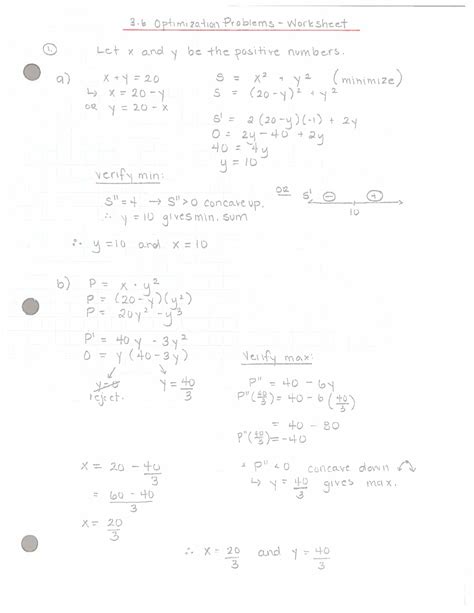 3.6 Optimization Problems - Worksheet
① Let x and y be the positive numbers.
a) x + y = 20
↳ x = 20 - y
OR y = 20 - x
S = x² + y² (minimize)
S = (20-y)² + y²
S' = 2(20-y)(-1) + 2y
0 = 2y - 40 + 2y
40 = 4y
y = 10
verify min:
S'' = 4 → S'' > 0 concave up.
∴ y = 10 gives min. sum
OR S' ⊖ ⊕
10
∴ y = 10 and x = 10
b) P = x · y²
P = (20-y)(y²)
P = 20y² - y³
P' = 40y - 3y²
0 = y(40-3y)
y=0 y = 40/3
reject.
Verify max:
P'' = 40 - 6y
P''(40/3) = 40 - 6(40/3)
= 40 - 80
P''(40/3) = -40
∴ P'' < 0 concave down
↳ y = 40/3 gives max.
x = 20 - 40/3
= 60 - 40/3
x = 20/3
∴ x = 20/3 and y = 40/3